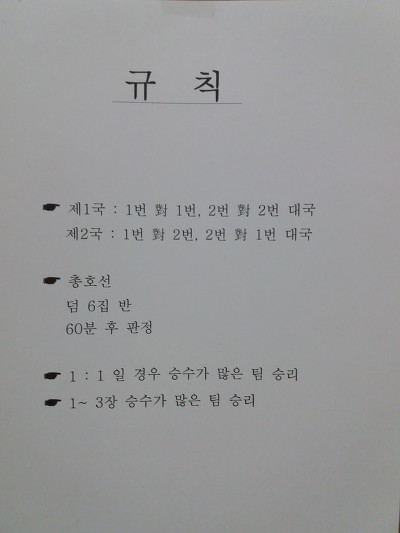 규 칙
☛ 제1국 : 1번 對 1번, 2번 對 2번 대국
제2국 : 1번 對 2번, 2번 對 1번 대국
☛ 총호선
덤 6집 반
60분 후 판정
☛ 1 : 1 일 경우 승수가 많은 팀 승리
☛ 1~ 3장 승수가 많은 팀 승리